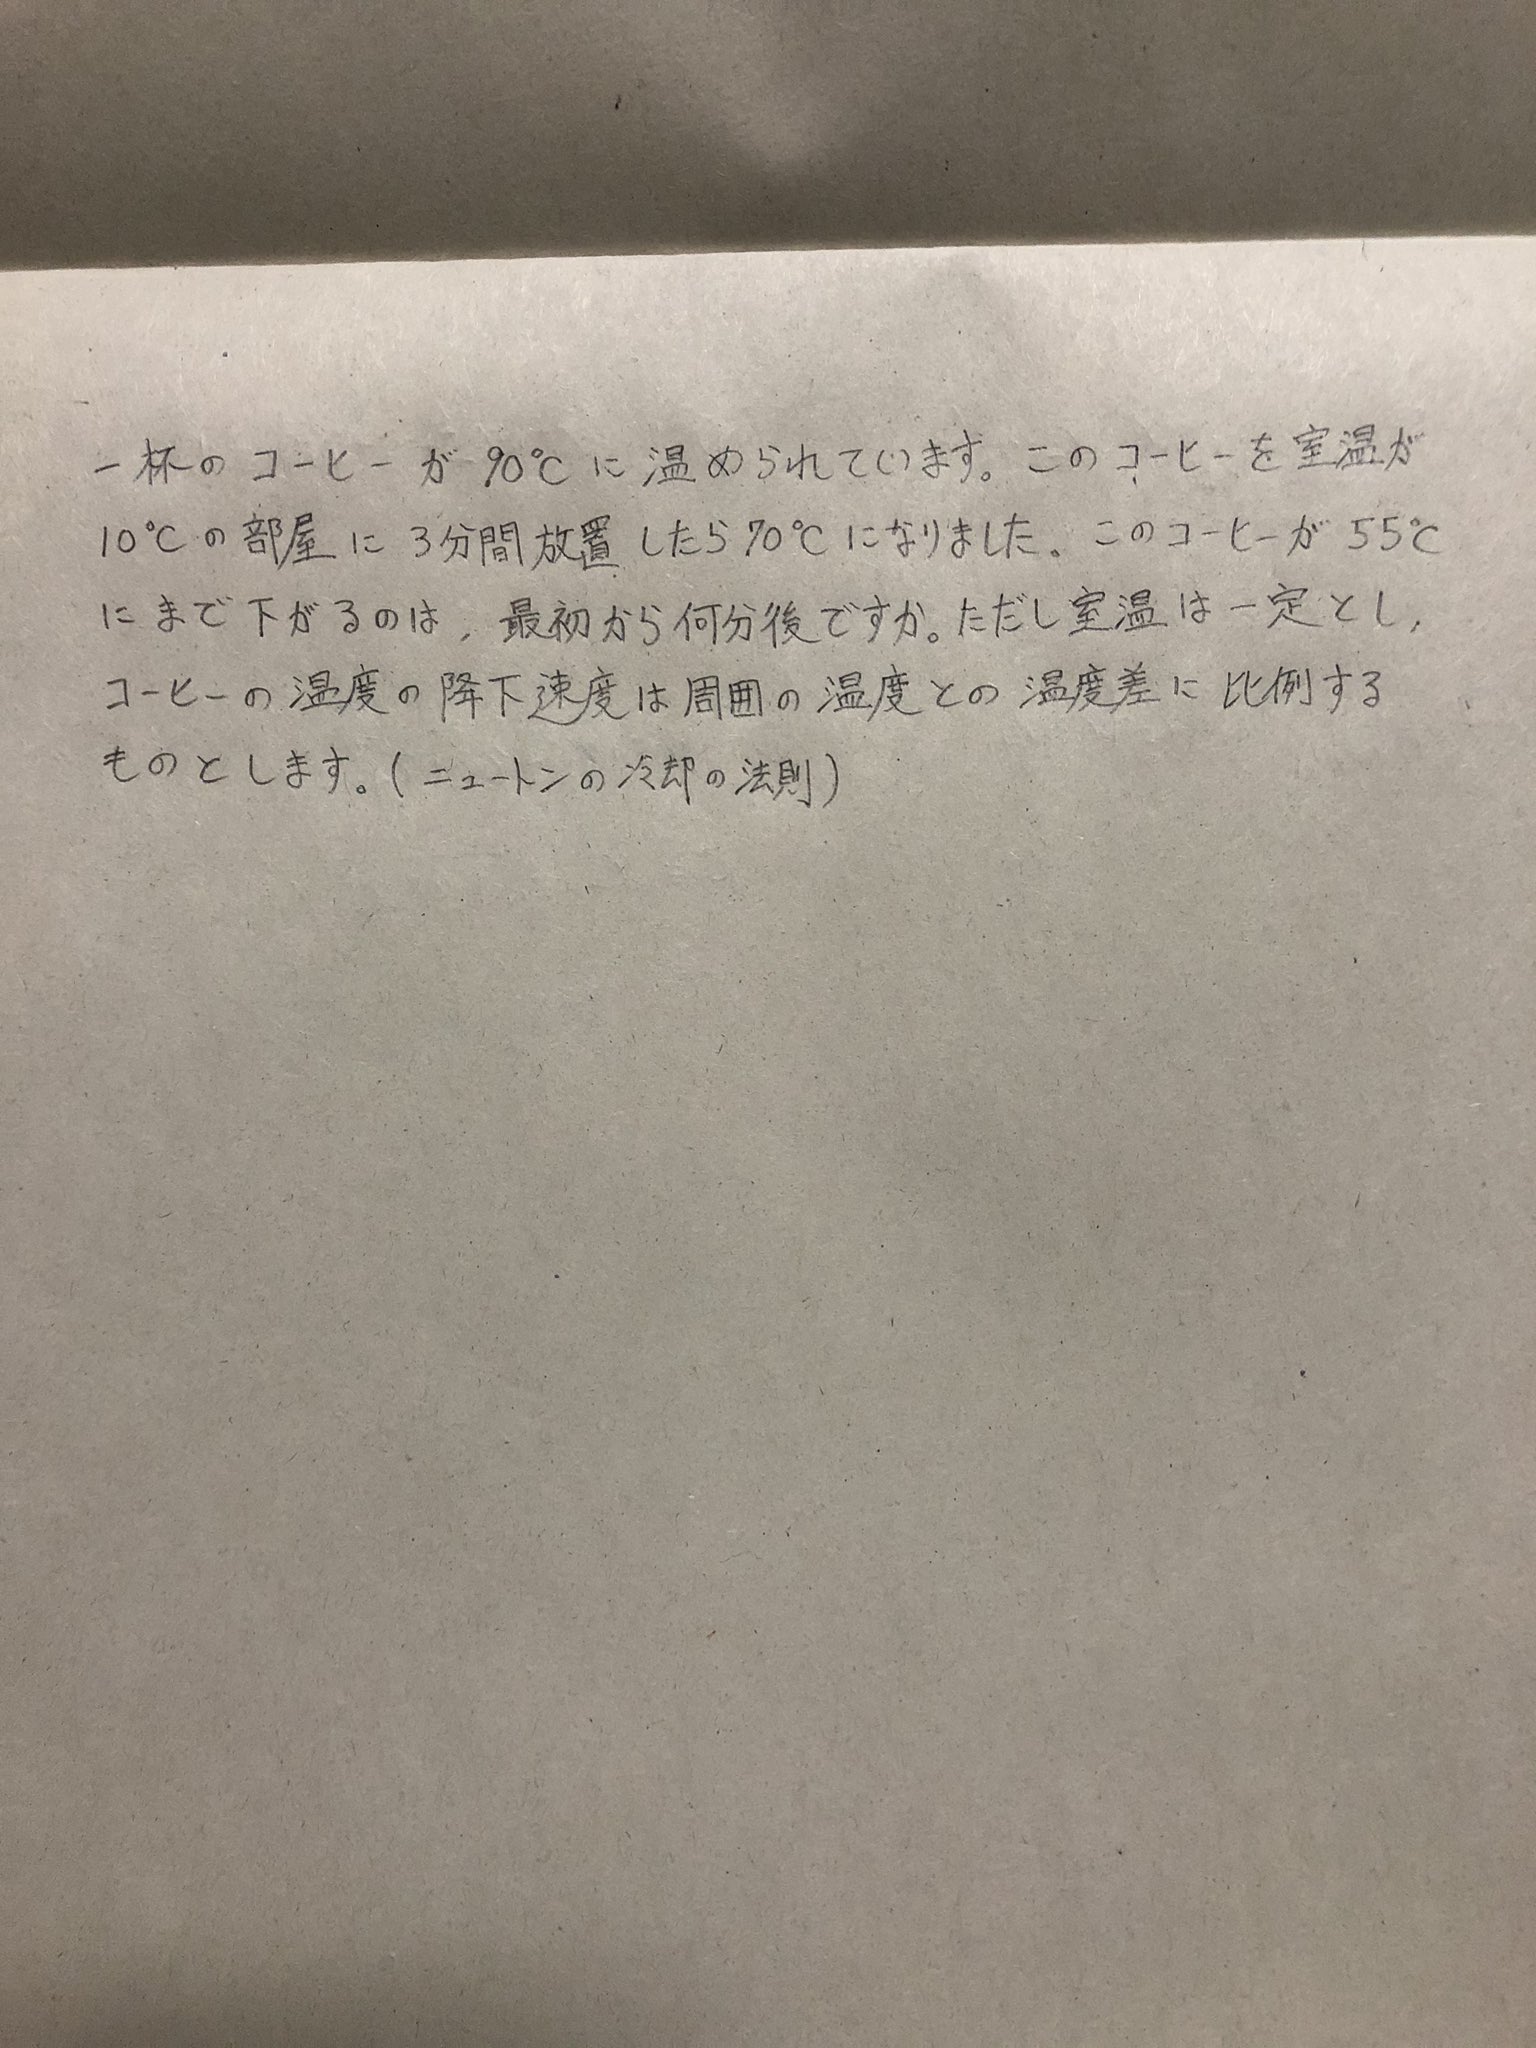 一杯のコーヒーが90℃に温められています。このコーヒーを室温が
10℃の部屋に3分間放置したら70℃になりました。このコーヒーが55℃
にまで下がるのは,最初から何分後ですか。ただし室温は一定とし,
コーヒーの温度の降下速度は周囲の温度との温度差に比例する
ものとします。(ニュートンの冷却の法則)